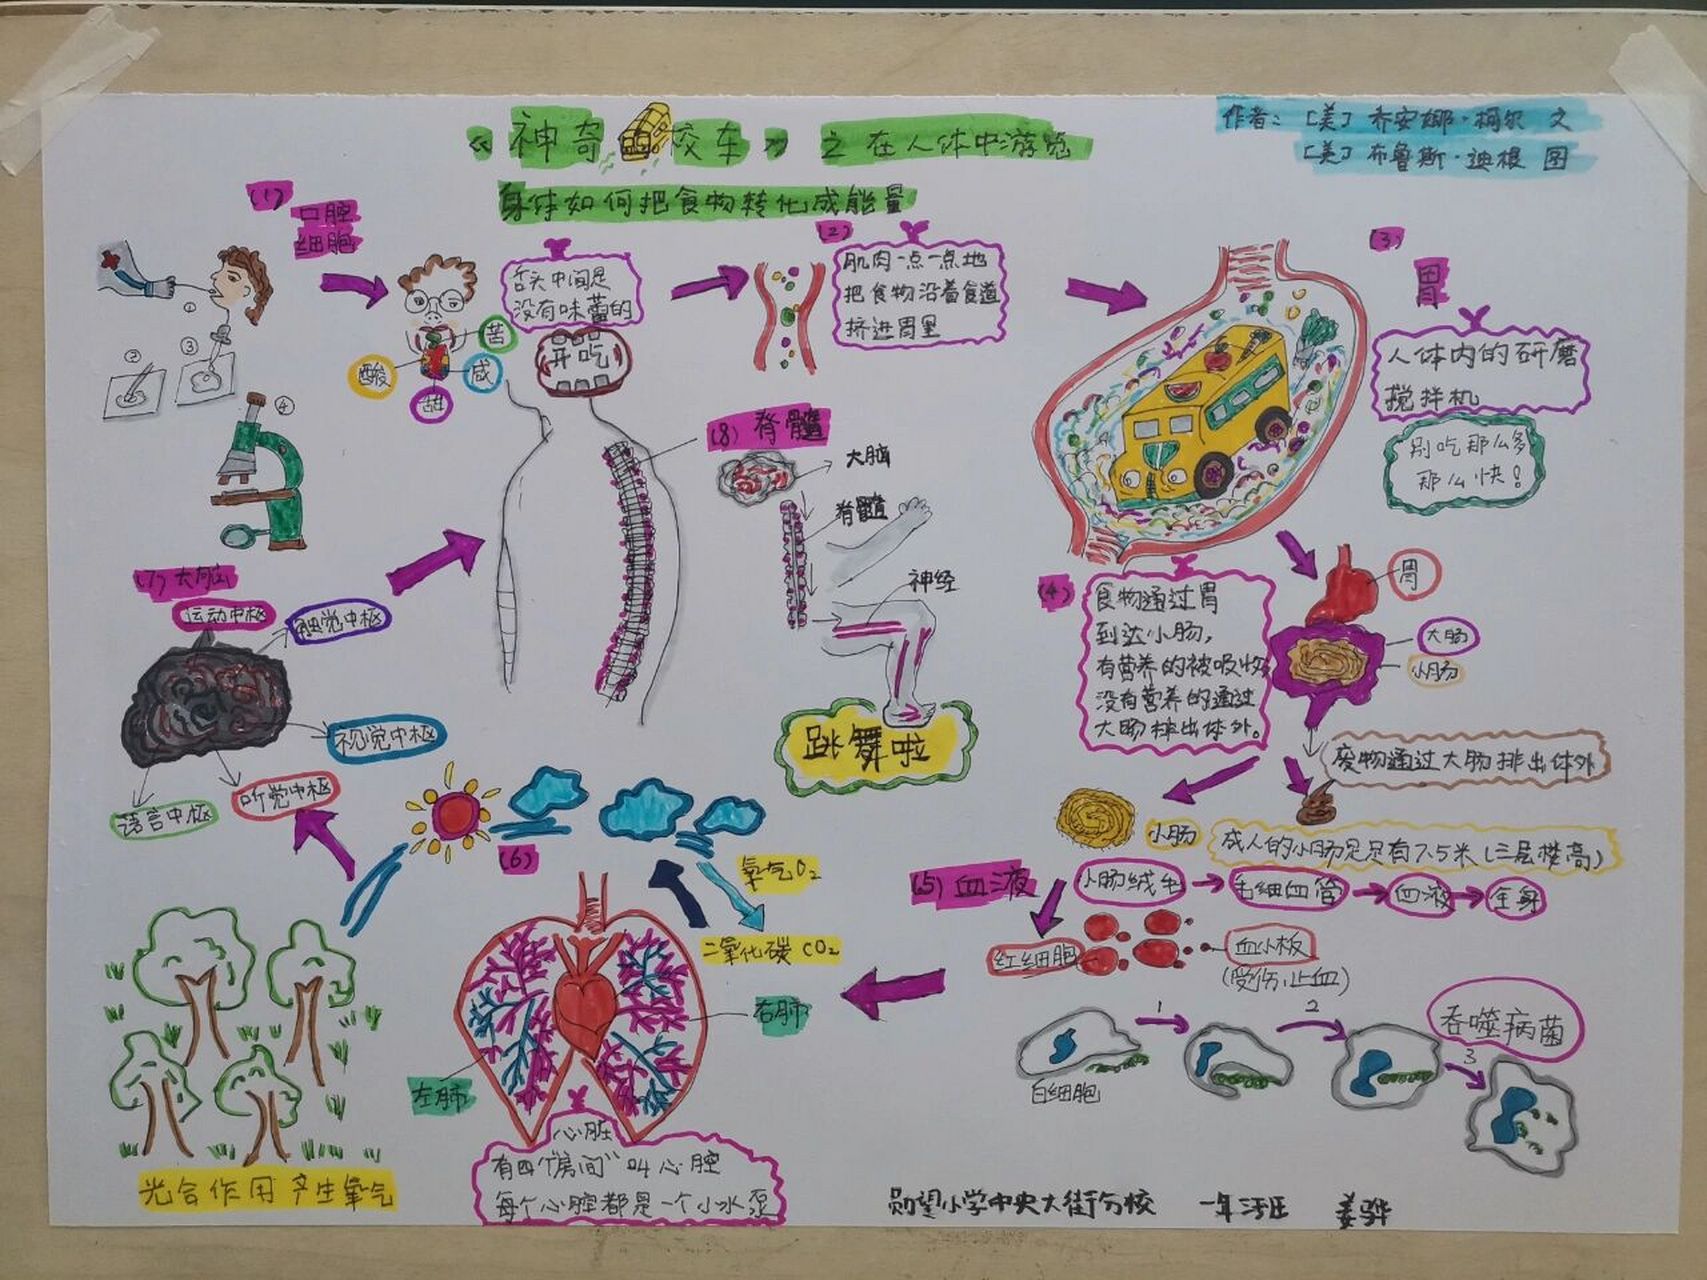 《神奇校车》之在人体中游览
作者：[美]乔安娜·柯尔 文
[美]布鲁斯·迪根 图
身体如何把食物转化成能量
(1)
口腔
细胞
①
②
③
④
苦
酸
咸
甜
舌头中间是
没有味蕾的
开吃
(2)
肌肉一点一点地
把食物沿着食道
挤进胃里
(3)
胃
人体内的研磨
搅拌机
别吃那么多
那么快！
(4)
食物通过胃
到达小肠，
有营养的被吸收
没有营养的通过
大肠排出体外。
胃
大肠
小肠
废物通过大肠排出体外
小肠
成人的小肠足足有7.5米(三层楼高)
(5)血液
小肠绒毛→毛细血管→血液→全身
红细胞
血小板
(受伤,止血)
1
2
3
吞噬病菌
白细胞
(6)
氧气O₂
二氧化碳 CO₂
右肺
左肺
心脏
有四个“房间”叫心腔
每个心腔都是一个小水泵
光合作用 产生氧气
(7)大脑
运动中枢
触觉中枢
视觉中枢
听觉中枢
语言中枢
(8)脊髓
大脑
脊髓
神经
跳舞啦
勋望小学中央大街分校 一年 班 姜骅